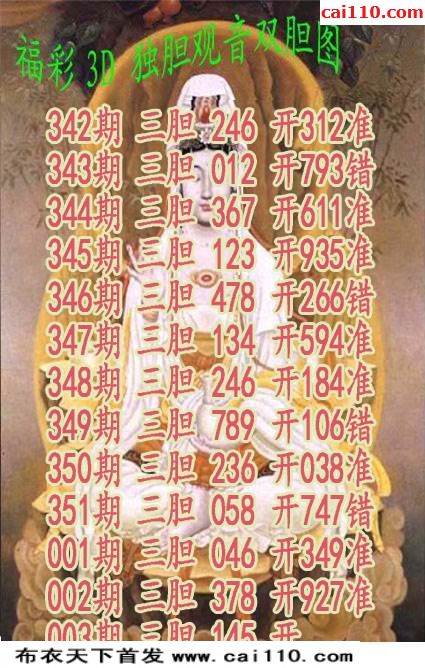 cai110.com
福彩3D 独胆观音双胆图
342期 三胆 246 开312准
343期 三胆 012 开793错
344期 三胆 367 开611准
345期 三胆 123 开935准
346期 三胆 478 开266错
347期 三胆 134 开594准
348期 三胆 246 开184准
349期 三胆 789 开106错
350期 三胆 236 开038准
351期 三胆 058 开747错
001期 三胆 046 开349准
002期 三胆 378 开927准
003期 三胆 145 开
布衣天下首发 www.cai110.com